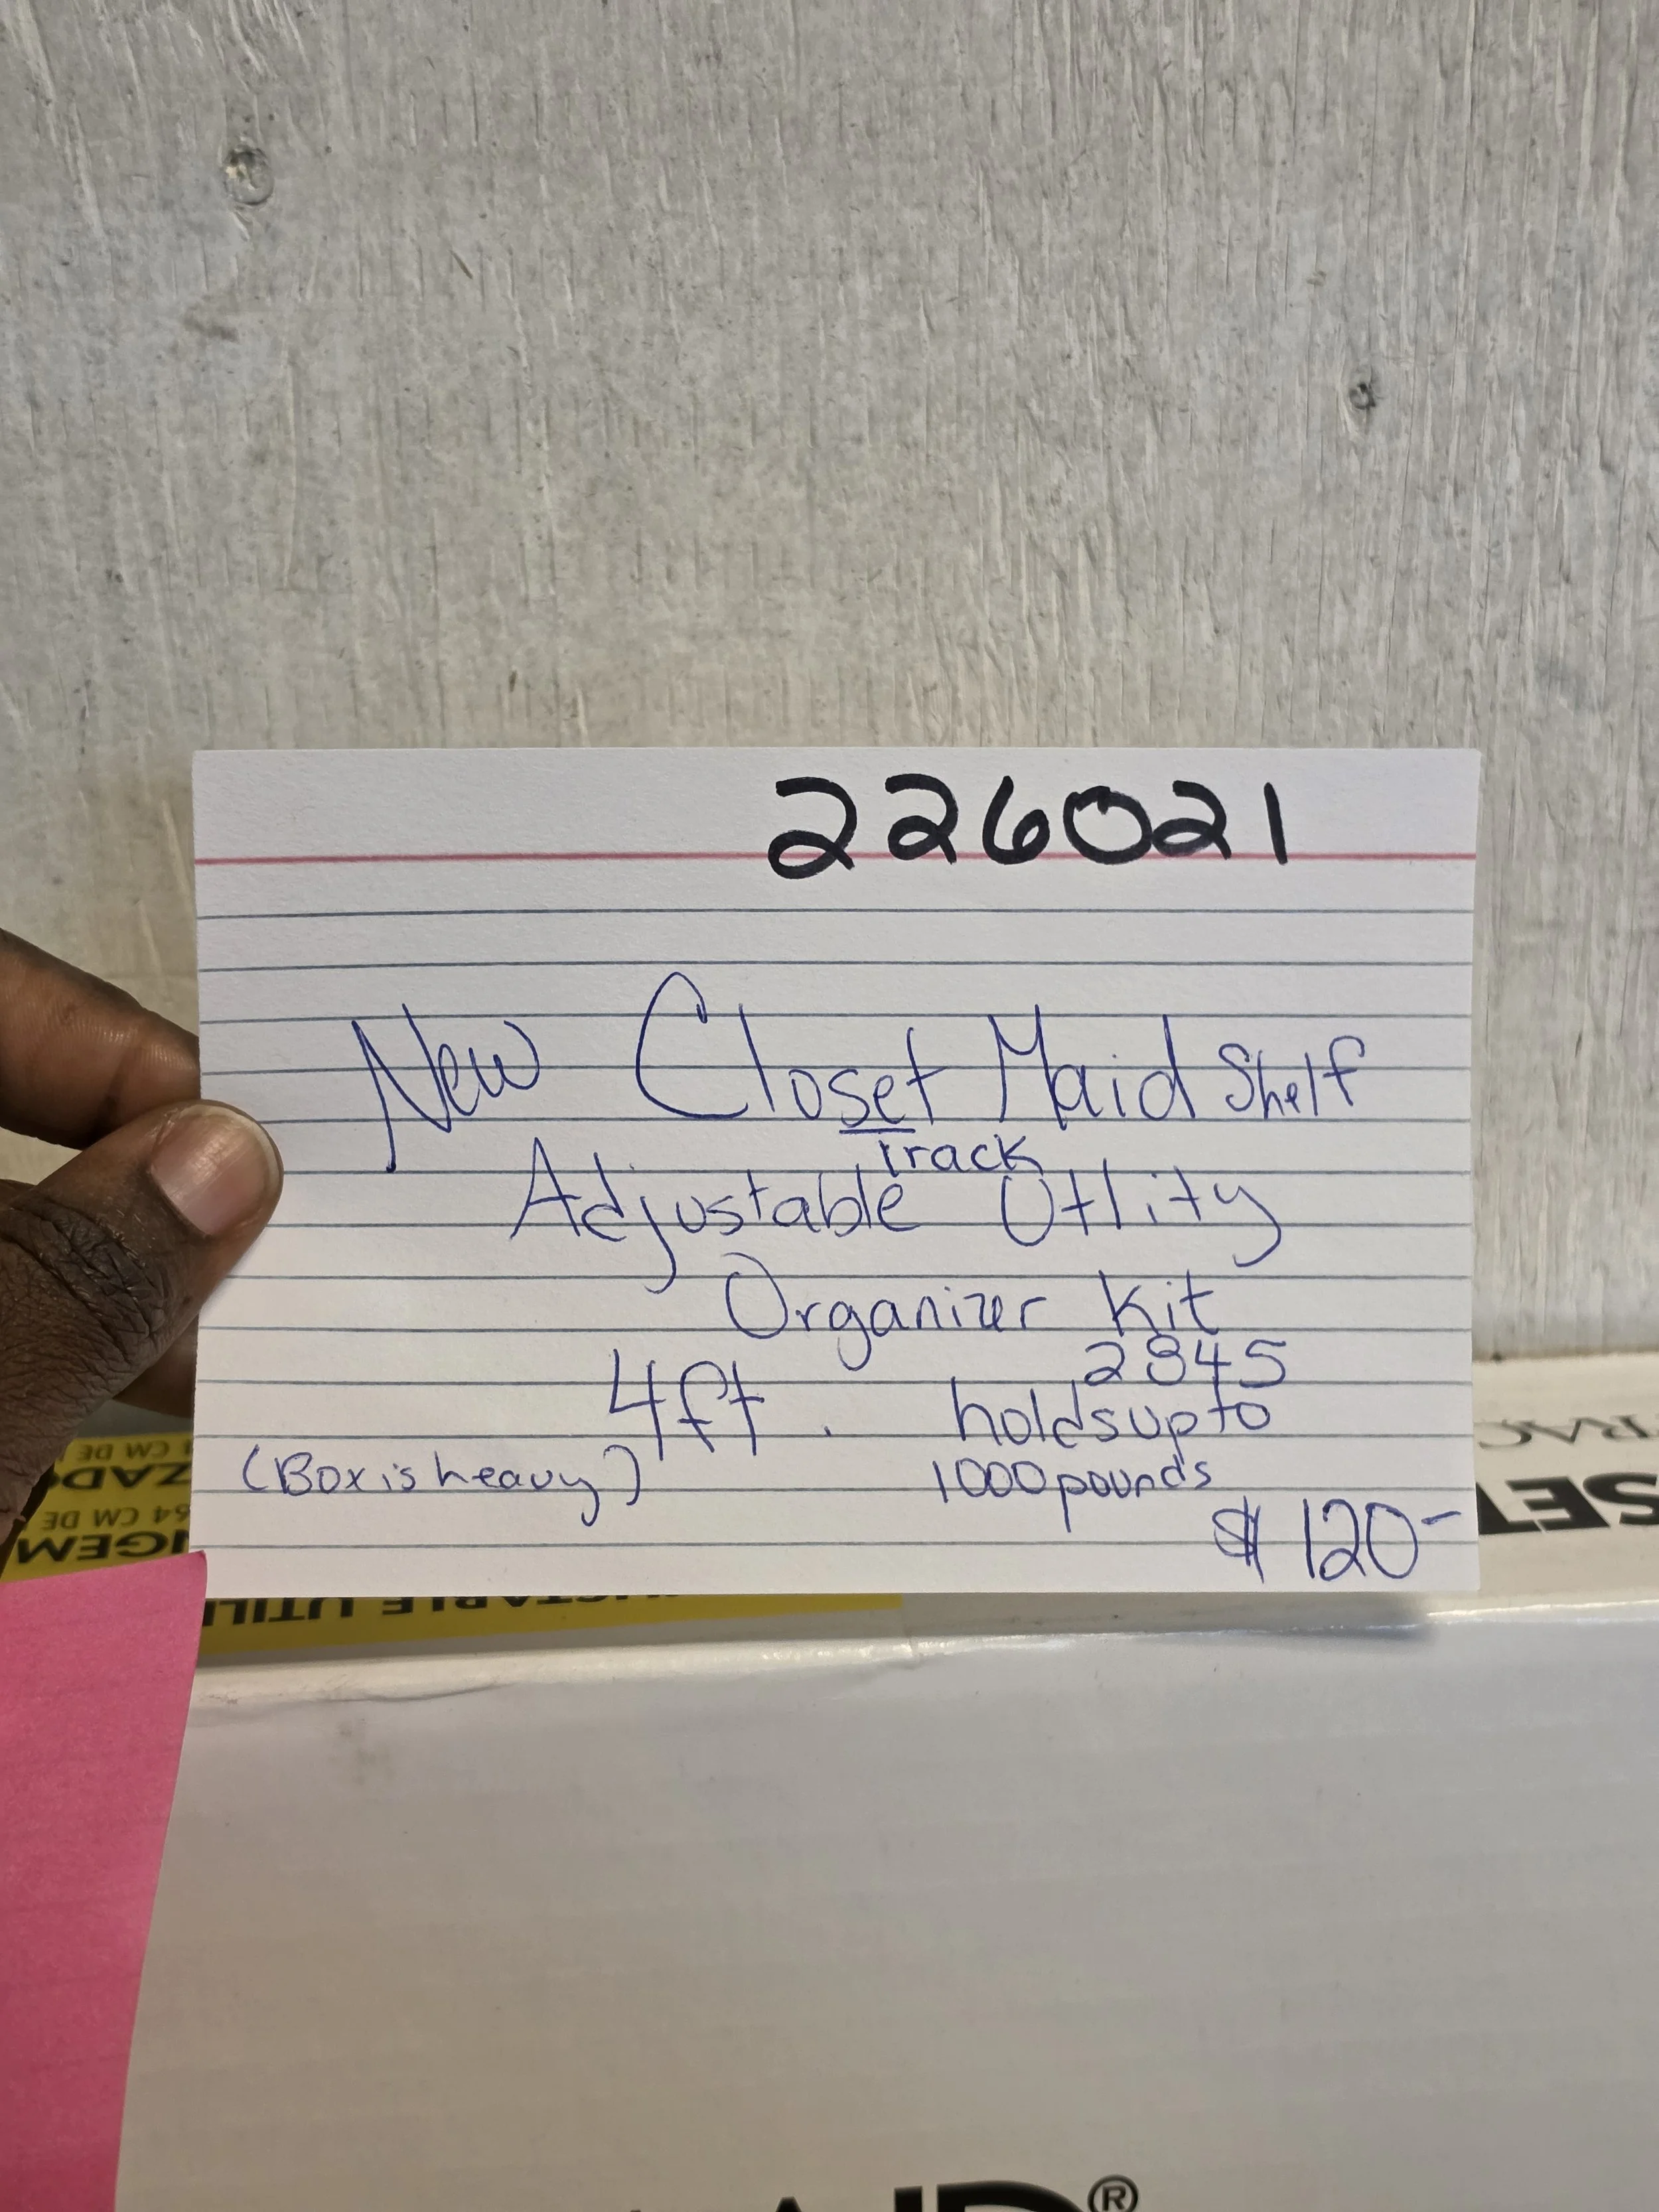 226021
New Closet Maid Shelf
Track
Adjustable Utlity
Organizer Kit
2845
4ft. holds up to
(Box is heavy) 1000 pounds
$120-
SET
®